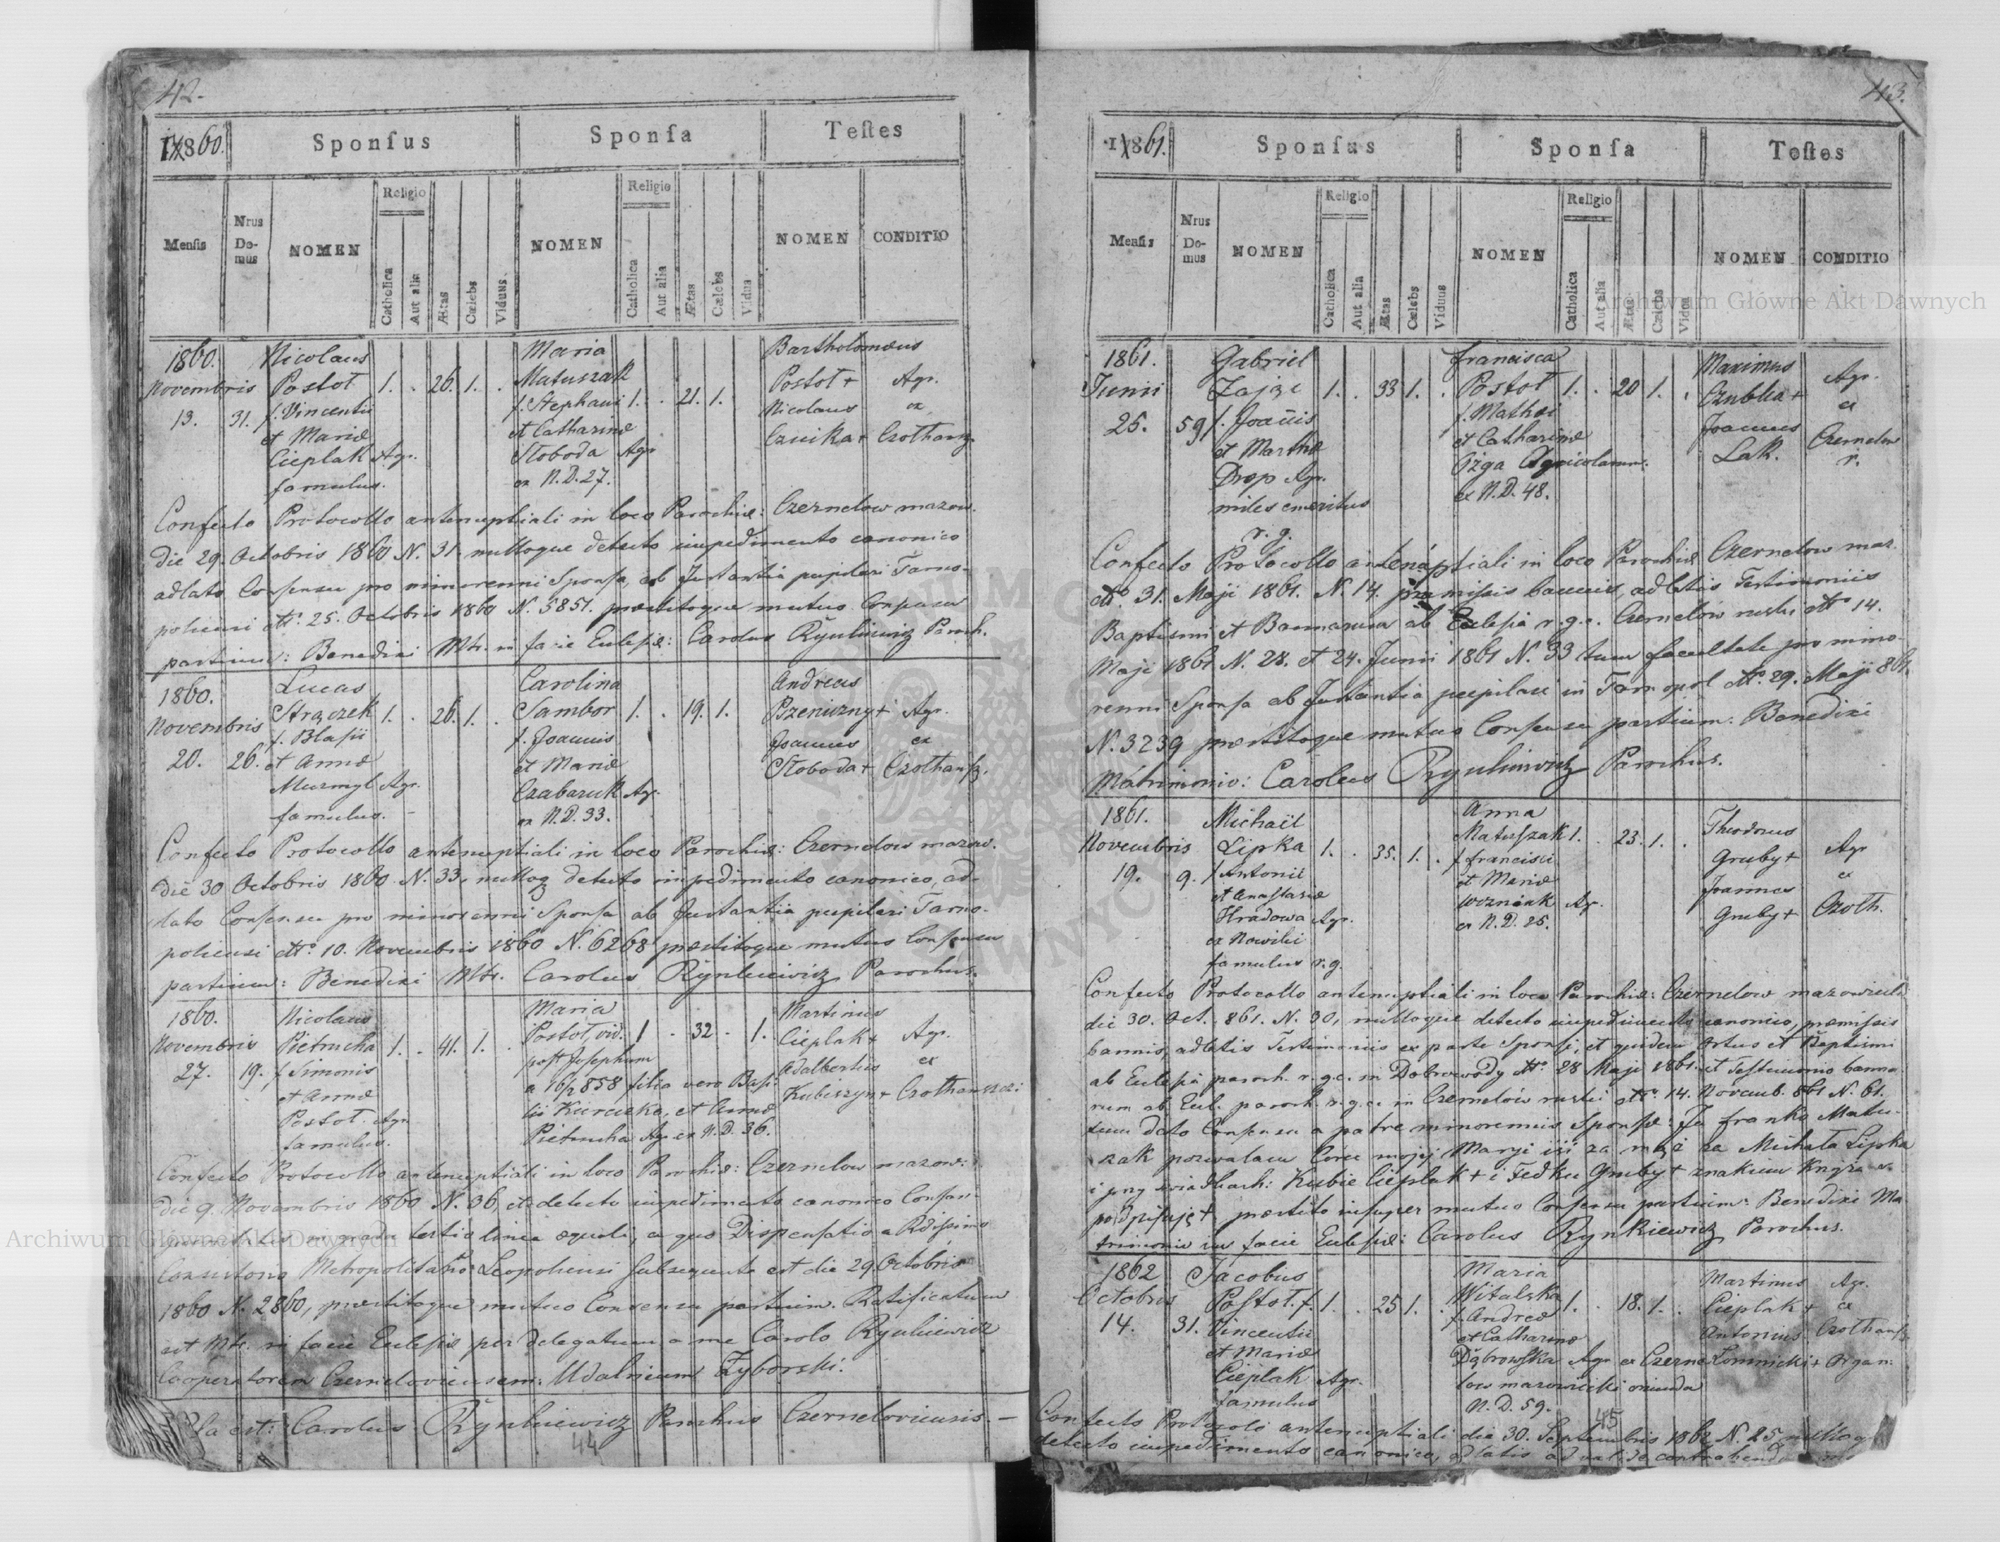 42.
1860.
Sponſus
Sponſa
Teſtes
Menſis
Nrus Do-mus
NOMEN
Religio
Catholica
Aut alia
Ætas
Cælebs
Viduus
NOMEN
Religio
Catholica
Aut alia
Ætas
Cælebs
Vidua
NOMEN
CONDITIO
1860. Nicolaus Maria Bartholomæus
Novembris Postoł 1. . 26. 1. . Matuszak Postoł + Agr.
13. 31. f. Vincentii f. Stephani 1. . 21. 1. Nicolaus ex
et Mariæ et Catharinæ + Czothansz.
Cieplak Agr. Słoboda Agr.
famulus. ex N.D. 27.
Confecto Protocollo antenuptiali in loco Parochiæ: Czernelow mazow.
die 29. Octobris 1860 N. 31. nulloque detecto impedimento canonico
adlato Consensu pro minorenni Sponsa, ab Instantia pupilari Tarno-
poliensi dtto 25. Octobris 1860 N. 5851. præstitoque mutuo Consensu
partium: Benedixi Mtr. in facie Eclesiæ: Carolus Rynkiewicz Paroch.
1860. Lucas Carolina Andreas
Novembris Strączek 1. . 26. 1. . Sambor 1. . 19. 1. Pszeniczny + Agr.
20. 26. f. Blasii f. Joannis Joannes ex
et Annæ et Mariæ Słoboda + Czothansz.
Murmyl Agr. Czabaruk Agr.
famulus. ex N.D. 33.
Confecto Protocollo antenuptiali in loco Parochiæ: Czernelow mazow.
die 30 Octobris 1860 N. 33. nulloq detecto impedimento canonico, ad-
lato Consensu pro minorenni Sponsa ab Instantia pupilari Tarno-
poliensi dtto 10. Novembris 1860 N. 6268 præstitoque mutuo Consensu
partium: Benedixi Mtr. Carolus Rynkiewicz Parochus.
1860. Nicolaus Maria Martinus
Novembris Pietrucha 1. . 41. 1. . Postoł, vid. 1 . 32 . 1. Cieplak + Agr.
27. 19. f. Simonis post Josephum Adalbertus ex
et Annæ a 858 filia vero Basi- Kubiszyn + Czothanszcz:
Postoł Agr. lii et Annæ
famulus. Pietrucha Agr. ex N.D. 36.
Confecto Protocollo antenuptiali in loco Parochiæ: Czernelow mazow:
die 9. Novembris 1860 N. 36, et detecto impedimento canonico Consan-
guinitatis in gradu tertio linea æquali, a quo Dispensatio a Rdissimo
Consistorio Metropolitano Leopoliensi subsequuta est die 29. Octobris
1860 N. 2860, præstitoque mutuo Consensu partium. Ratificatum
est Mtr. in facie Eclesiæ per delegatum a me Carolo Rynkiewicz
Cooperatorem Czerneloviensem: Udalricum Zyborski.
est: Carolus Rynkiewicz Parochus Czerneloviensis. —
44
43.
1861.
Sponſus
Sponſa
Teſtes
Menſis
Nrus Do-mus
NOMEN
Religio
Catholica
Aut alia
Ætas
Cælebs
Viduus
NOMEN
Religio
Catholica
Aut alia
Ætas
Cælebs
Vidua
NOMEN
CONDITIO
1861. Gabriel Francisca Maximus
Junii Zając 1. . 33 1. . Postoł 1. . 20 1. . + Agr.
25. 59 f. Joannis f. Mathæi Joannes ex
et Marthæ et Catharinæ Łak. Czernelow
Drop Agr. Ożga Agricolarum. r.
miles emeritus ex N.D. 48.
r. g.
Confecto Protocollo antenuptiali in loco Parochiæ Czernelow maz.
dtto 31. Maji 1861. N. 14. præmissis bannis, adlatis Testimoniis
Baptismi et Bannorum ab Eclesia r.g.c. Czernelow rust. dtto 14.
Maji 1861 N. 28. et 24. Junii 1861 N. 33 tum facultate pro mino-
renni Sponsa ab Instantia pupilari in Tarnopol dtto 29. Maji 861.
N. 3239 præstitoque mutuo Consensu partium: Benedixi
Matrimonio: Carolus Rynkiewicz Parochus.
1861. Michail Anna Theodorus
Novembris Lipka 1. . 35. 1. . Matuszak 1. . 23. 1. . Gruby + Agr
19. 9. f. Antonii f. Francisci Joannes ex
et Anastasiæ et Mariæ Gruby + Czoth.
Hradowa Agr. Wozniak Agr.
ex Nowiki ex N.D. 25.
famulus r.g.
Confecto Protocollo antenuptiali in loco Parochiæ: Czernelow mazowiecki
die 30. Oct. 861. N. 30, nulloque detecto impedimento canonico, præmissis
bannis, adlatis Testimoniis ex parte Sponsi, et quidem Ortus et Baptismi
ab Eclesia paroch. r.g.c. in Dobrowody dtto 28 Maji 1861. et Testimonio banno-
rum ab Ecl. paroch. r.g.c. in Czernelów rustic. dtto 14. Novemb. 861 N. 61.
tum dato Consensu a patre minorennis Sponsæ: Ja Franko Matu-
szak pozwalam Corce mojej Maryi iść za mąż za Michała Lipka
i przy swiadkach: Kubie Cieplak + i Fedku Gruby + znakiem Krzyża s.
podpisuję + præstito insuper mutuo Consensu partium: Benedixi Ma-
trimonio in facie Eclesiæ: Carolus Rynkiewicz Parochus.
1862 Jacobus Maria Martinus Agr.
Octobris Postoł. f. 1. . 25 1. . Witalska 1. . 18. 1. . Cieplak + ex
14. 31. Vincentii f. Andreæ Antonius Czothansz.
et Mariæ et Catharinæ Łomnicki + Organ.
Cieplak Agr. Dąbrowska Agr. ex Czerne-
famulus low mazowiecki oriunda
N.D. 59.
45
Confecto Protocolo antenuptiali die 30. Septembris 1862 N. 25 nulloq
detecto impedimento canonico, adlatis ad valide contrahend
Archiwum Główne Akt Dawnych
Archiwum Główne Akt Dawnych